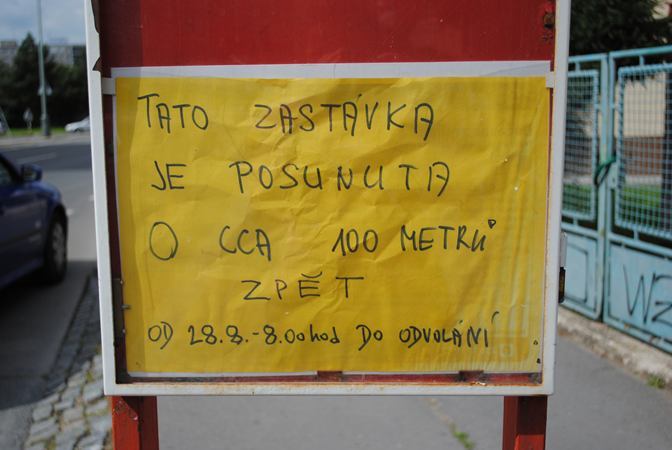 TATO ZASTÁVKA
JE POSUNUTA
O CCA 100 METRŮ
ZPĚT
OD 28.8.-8.00hod DO ODVOLÁNÍ